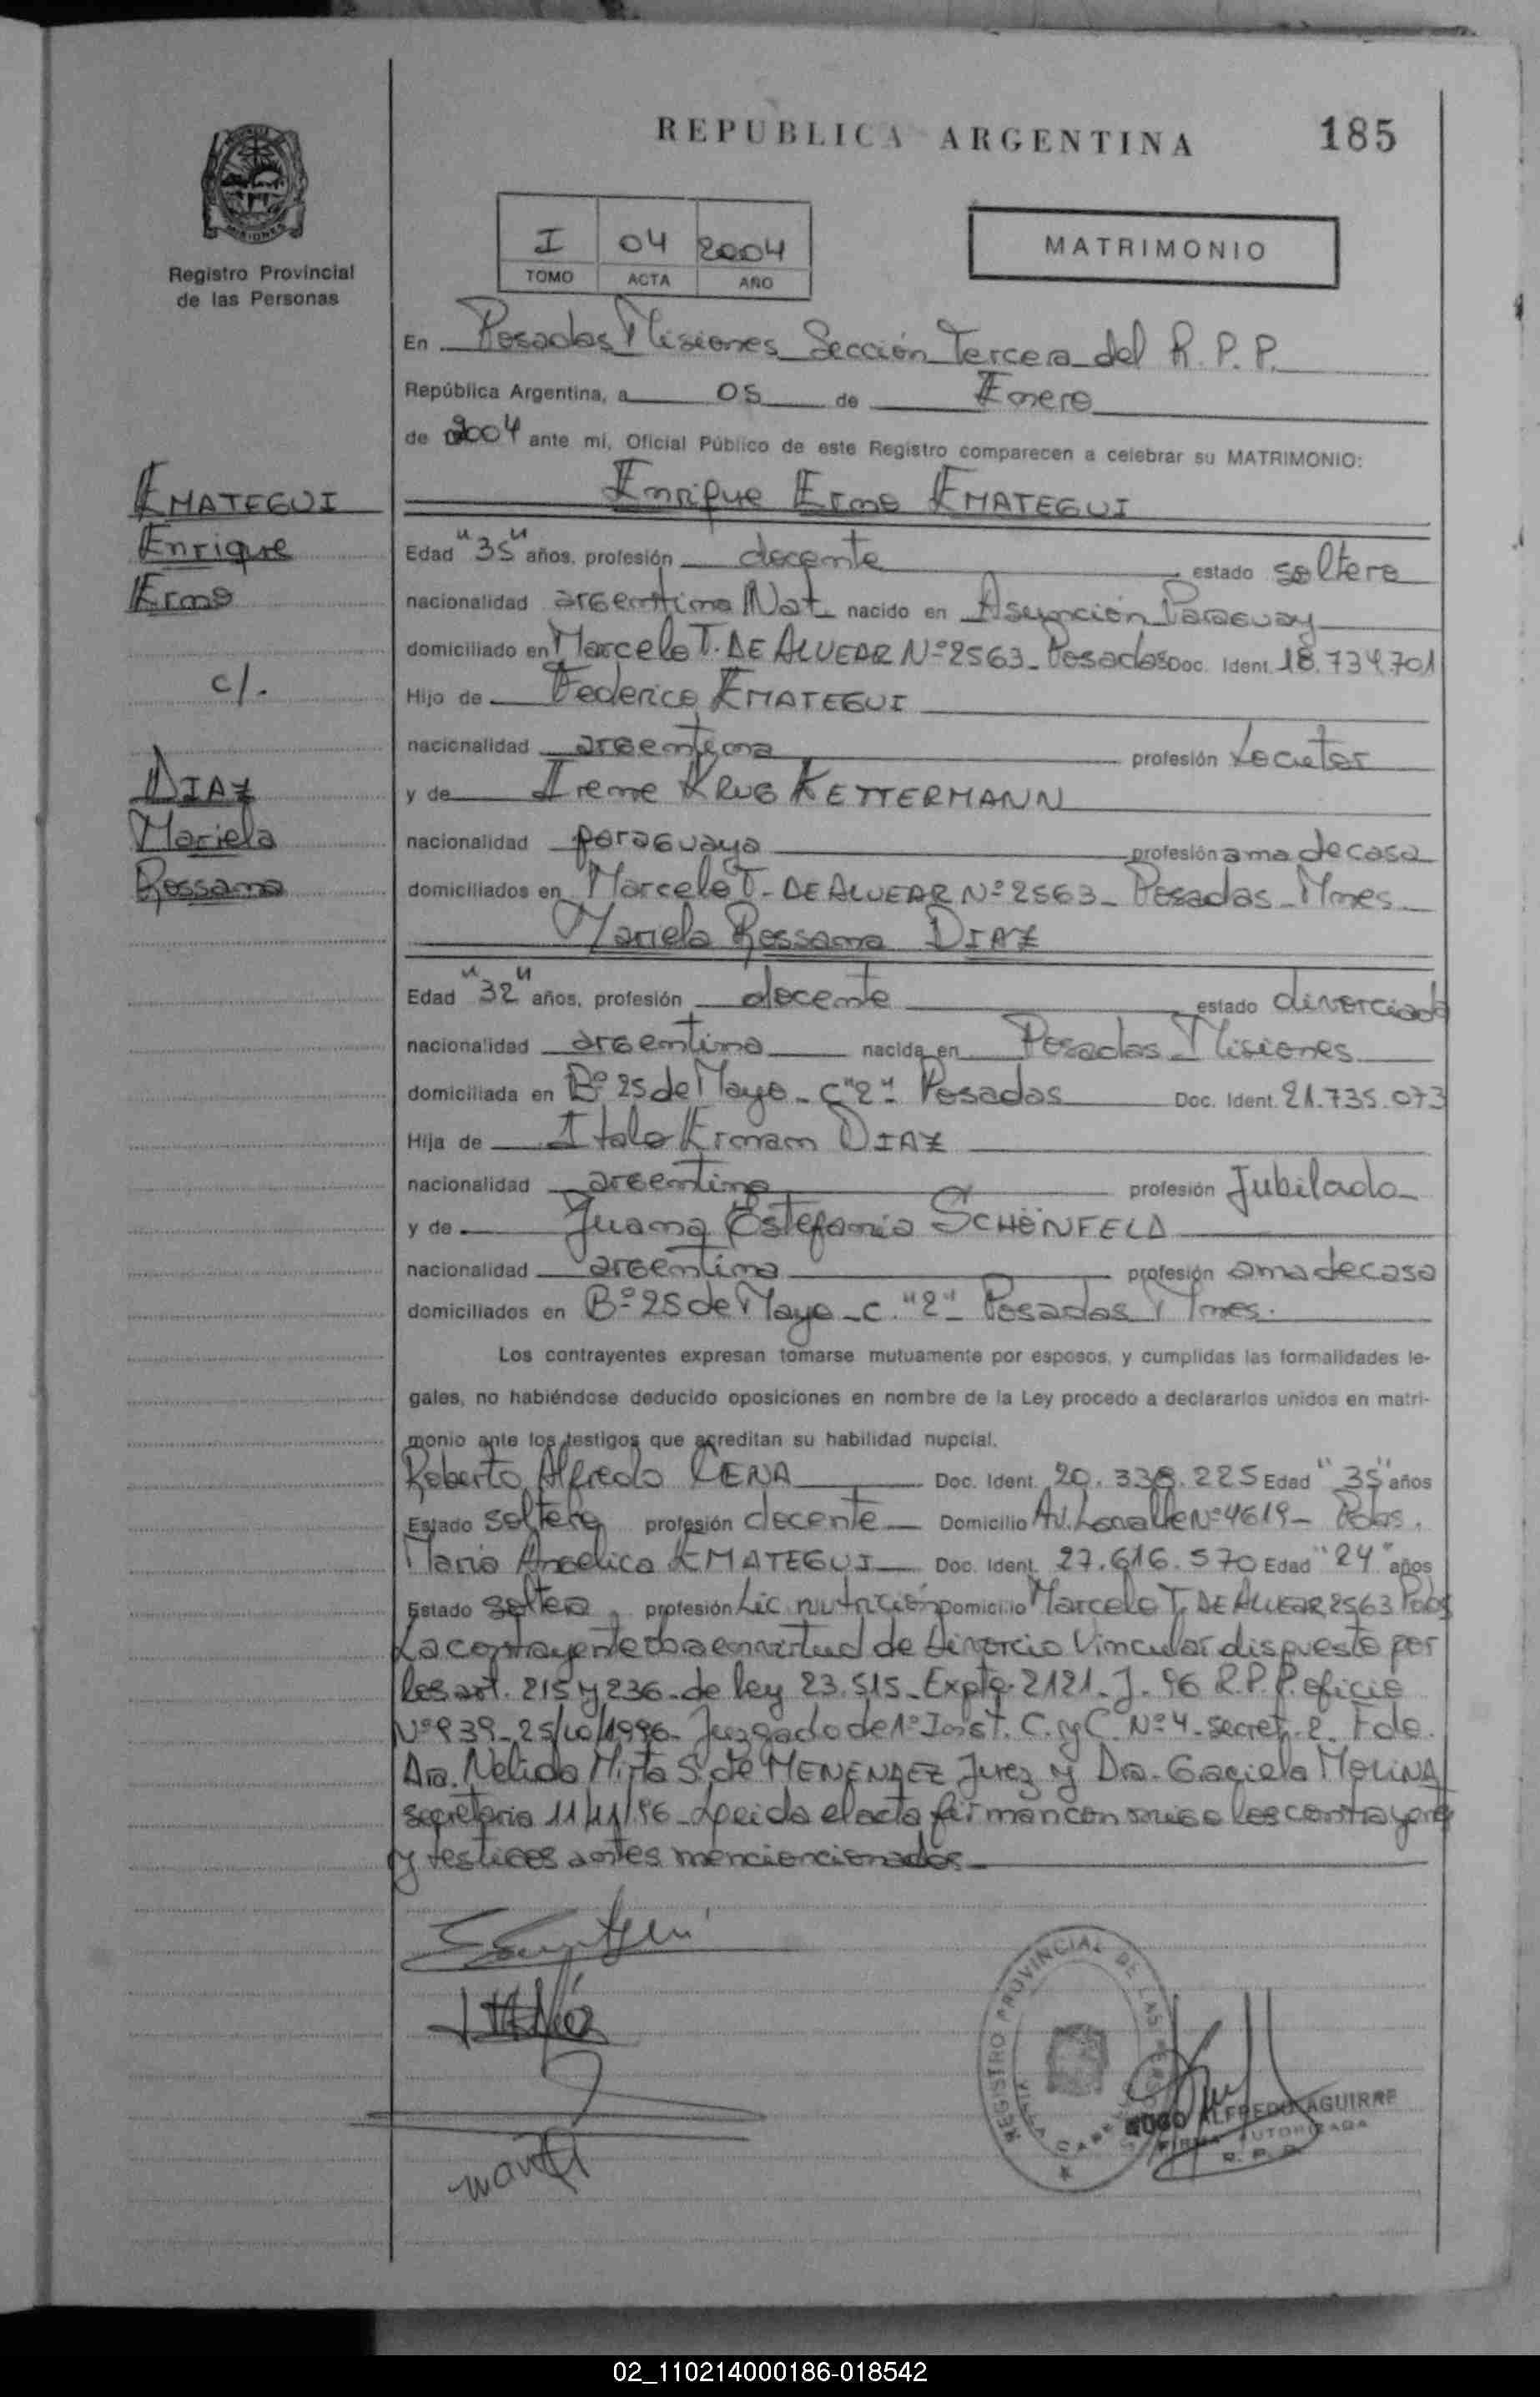 REPUBLICA ARGENTINA
185
MISIONES
Registro Provincial
de las Personas
I 04 2004
TOMO ACTA AÑO
MATRIMONIO
En Posadas Misiones Sección Tercera del R.P.P.
República Argentina, a 05 de Enero
de 2004 ante mi, Oficial Público de este Registro comparecen a celebrar su MATRIMONIO:
EMATEGUI
Enrique
Erno
c/.
DIAZ
Mariela
Rossana
Enrique Erno EMATEGUI
Edad "35" años, profesión docente estado soltero
nacionalidad argentino Nat. nacido en Asunción Paraguay
domiciliado en Marcelo T. DE ALVEAR Nº 2563 - Posadas Doc. Ident. 18.734.701
Hijo de Federico EMATEGUI
nacionalidad argentina profesión Locutor
y de Irene KRUG KETTERMANN
nacionalidad paraguaya profesión ama de casa
domiciliados en Marcelo T. DE ALVEAR Nº 2563 - Posadas - Mnes
Mariela Rossana DIAZ
Edad "32" años, profesión docente estado divorciada
nacionalidad argentina nacida en Posadas - Misiones
domiciliada en Bº 25 de Mayo - C "2" - Posadas Doc. Ident. 21.735.073
Hija de Italo Ernan DIAZ
nacionalidad argentina profesión Jubilado
y de Juana Estefania SCHÖNFELD
nacionalidad argentina profesión ama de casa
domiciliados en Bº 25 de Mayo - C. "2" - Posadas Mnes.
Los contrayentes expresan tomarse mutuamente por esposos, y cumplidas las formalidades le-
gales, no habiéndose deducido oposiciones en nombre de la Ley procedo a declararlos unidos en matri-
monio ante los testigos que acreditan su habilidad nupcial.
Roberto Alfredo CENA Doc. Ident. 20.338.225 Edad "35" años
Estado soltero profesión docente Domicilio Av. Lavalle Nº 4619 - Pdas.
Maria Angelica EMATEGUI Doc. Ident. 27.616.570 Edad "24" años
Estado soltera profesión Lic. nutrición Domicilio Marcelo T. DE ALVEAR 2563 Pdas
La contrayente en virtud de Divorcio Vincular dispuesto por
los art. 215 y 236 - de ley 23.515 - Expte. 2121 - J - 96 R.P.P. oficio
Nº 939 - 25/10/1996 - Juzgado de 1º Inst. C. y C. Nº 4 - secret. 2. Fdo.
Dra. Nelida Mirta S. de MENENDEZ Juez y Dra. Graciela MOLINA
secretaria 11/11/96 - Leida el acta firman con migo los contrayentes
y testigos antes mencionados
REGISTRO PROVINCIAL DE LAS PERSONAS
VILLA CABELLO
HUGO ALFREDO AGUIRRE
FIRMA AUTORIZADA
R. P. P.
02_110214000186-018542